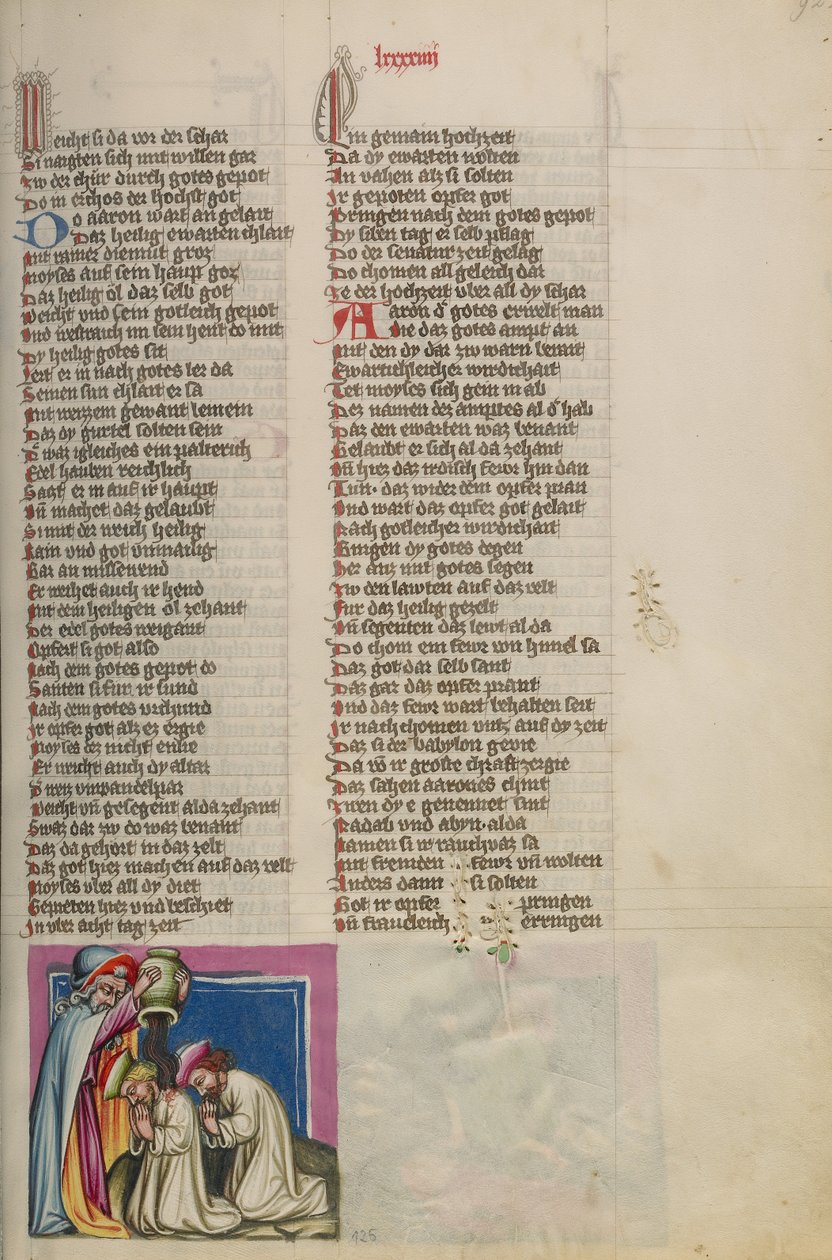 lxxxxiiij
Weicht si da vor der schar
Si naigten sich mit willen gar
Zw der chür durch gotes gepot
Do in erchos der hochst got
Do aaron wart an gelait
Daz heilig ewarten chlait
Mit rainer diemut groz
Moyses auf sein haup goz
Daz heilig öl daz selb got
Weicht vnd sein gotleich gepot
Vnd westraich im sein hent do mit
Dy heilig gotes sit
Lert er in nach gotes ler da
Seinen sun chlait er sa
Mit weizzem gewant leinein
Daz dy gurtel solten sein
D waz igleiches ein palterich
Edel hauben reichlich
Sazt er in auf ir haupt
Vn machet daz gelaubt
Si mit der weich heilig
Rain vnd got vnmailig
Gar an missewend
Er weihet auch ir hend
Mit dem heiligen öl zehant
Der edel gotes weigant
Opfert si got also
Nach dem gotes gepot do
Santen si fur ir sund
Nach dem gotes vrchund
Ir opfer got alz ez ergie
Moyses dez nicht enlie
Er weicht auch dy altar
D weiz vnwandelpar
Weicht vn gesegent alda zehant
Swaz dar zw do waz benant
Daz da gehort in daz zelt
Daz got hiez machen auf daz velt
Moyses vber all dy diet
Gepieten hiez vnd beschiet
In vber acht tag zeit
Ein gemain hochzeit
Da dy ewarten wolten
An vahen alz si solten
Ir gepoten opfer got
Pringen nach dem gotes gepot
Dy siben tag er selb pflag
Do der senatur zeit gelag
Do chomen all geleich dar
Ze der hochzeit vber all dy schar
Aaron d gotes erwelt man
Vie daz gotes ampt an
Mit den dy dar zw warn benant
Ewartichleicher wirdichait
Tet moyses sich gein in ab
Dez namen dez amptes al d hab
Daz den ewarten waz benant
Gelaubt er sich al da zehant
Vn hiez daz irdisch fewr hin dan
Tun · daz wider dem opfer pran
Vnd wart daz opfer got gelait
Nach gotleicher wirdichait
Gingen dy gotes degen
Her auz mit gotes segen
Zw den lawten auf daz velt
Fur daz heilig gezelt
Vn segenten daz lewt al da
Do chom ein fewr von himel sa
Daz got dar selb sant
Daz gar daz opfer prant
Vnd daz fewr wart behalten seit
Ir nach chomen vntz auf dy zeit
Daz si der babylon gevie
Da von ir groste chraft zergie
Daz sahen aarones chint
Zwen dy e genennet sint
Nadab vnd abyu · alda
Namen si ir rauchvaz sa
Mit fremden fewr vn wolten
Anders dann si solten
Got ir opfer pringen
Vn fraueleich erringen
126